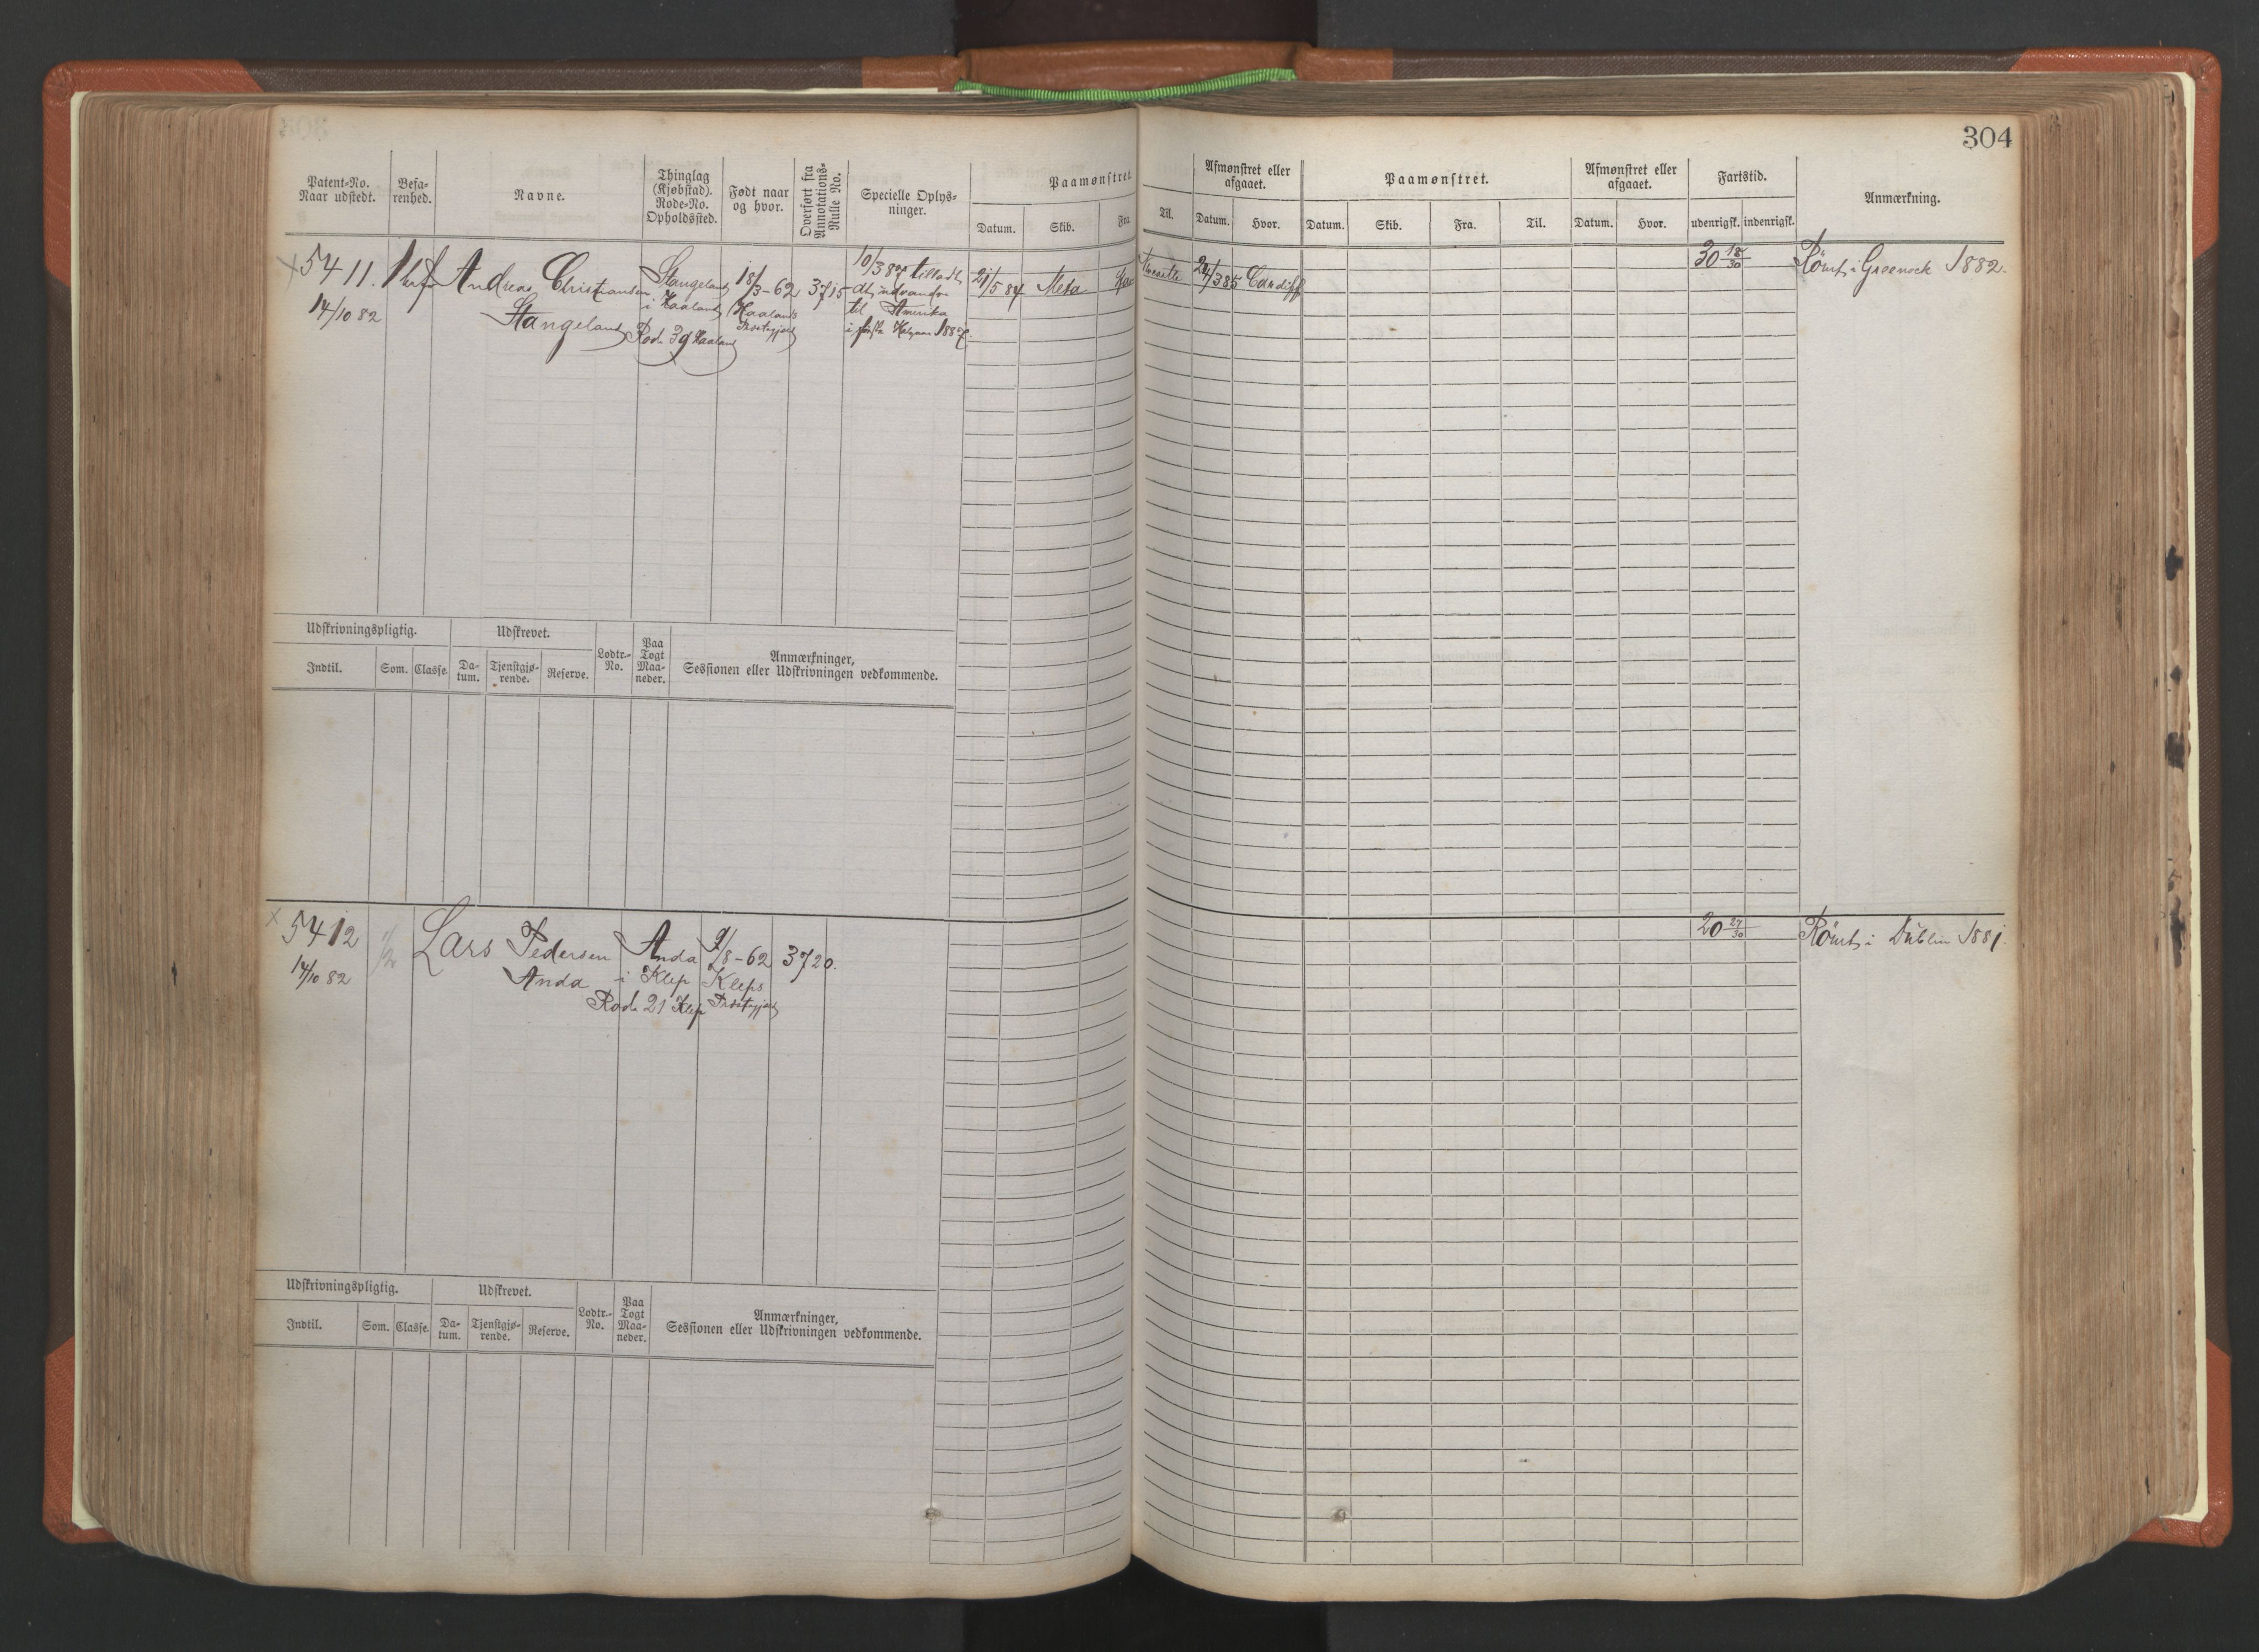 304
Patent=No.
Naar udstedt.
Befa=
renhed.
Navne.
Thinglag
(Kjøbstad).
Rode=No.
Opholdssted.
Født naar
og hvor.
Overført fra
Annotations=
Rulle No.
Specielle Oplys=
ninger.
Paamønstret
Datum. Skib. Fra
Til.
Afmønstret eller
afgaaet.
Datum. Hvor.
Paamønstret.
Datum. Skib. Fra. Til.
Afmønstret eller
afgaaet.
Datum. Hvor.
Fartstid.
udenrigsk. indenrigsk.
Anmærkning.
5411.
14/10 82
Andreas Christiansen
Stangeland
Stangeland
i Haaland
Rode 39 Haaland
18/3-62
Haalands
Præstegjæld
3715
10/3 87 tilladt
at udvandre
til Amerika
i første Halvaar 1887.
21/5 84 Meta
24/3 85 Cardiff
30 18/30
Römt i Greenock 1882.
Udskrivningspligtig.
Udskrevet.
Lodtr.=
No.
Paa
Togt
Maa=
neder.
Anmærkninger,
Sessionen eller Udskrivningen vedkommende.
Indtil. Som. Classe. Da=
tum. Tjenstgjø=
rende. Reserve.
5412
14/10 82
1/2
Lars Pedersen
Anda
Anda
i Klep
Rode 21 Klep
9/8-62
Kleps
Præstegjæld
3720.
20 27/30
Römt i Dublin 1881.
Udskrivningspligtig.
Udskrevet.
Lodtr.=
No.
Paa
Togt
Maa=
neder.
Anmærkninger,
Sessionen eller Udskrivningen vedkommende.
Indtil. Som. Classe. Da=
tum. Tjenstgjø=
rende. Reserve.